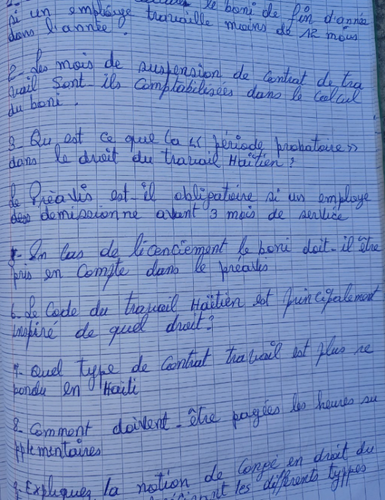 le boni de fin d'année
si un employé travaille moins de 12 mois
dans l'année ?
2_ Les mois de suspension de contrat de tra
vail sont-ils comptabilisées dans le calcul
du boni.
3_ Qu est ce que la « période probatoire »
dans le droit du travail Haïtien ?
Le Préavis est-il obligatoire si un employé
démissionne avant 3 mois de service
En cas de licenciement le boni doit-il être
pris en compte dans le préavis
6_ Le Code du travail Haïtien est principalement
inspiré de quel droit ?
7_ Quel type de contrat travail est plus re
pondu en Haïti
8_ Comment doivent-être payées les heures su
pplementaires
9_ Expliquez la notion de Congé en droit du
les différents types